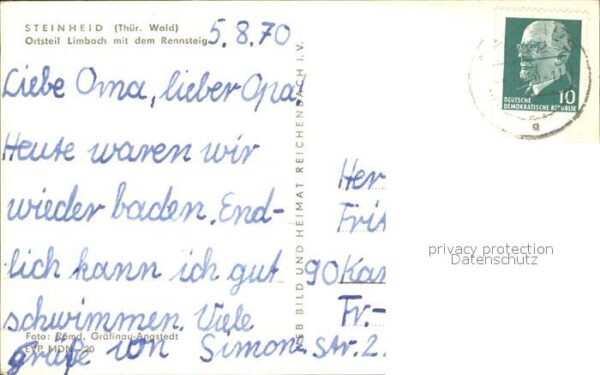 STEINHEID (Thür. Wald)
Ortsteil Limbach mit dem Rennsteig
5.8.70
Liebe Oma, lieber Opa
Heute waren wir
wieder baden. End-
lich kann ich gut
schwimmen. Viele
Grüße von Simone
Foto: Bernd, Gräfinau-Angstedt
EVP MDN 20
BILD UND HEIMAT REICHENBACH I. V.
10
DEUTSCHE
DEMOKRATISCHE REPUBLIK
Her
Fri
90 Kar
Fr.-
Str. 2
privacy protection
Datenschutz